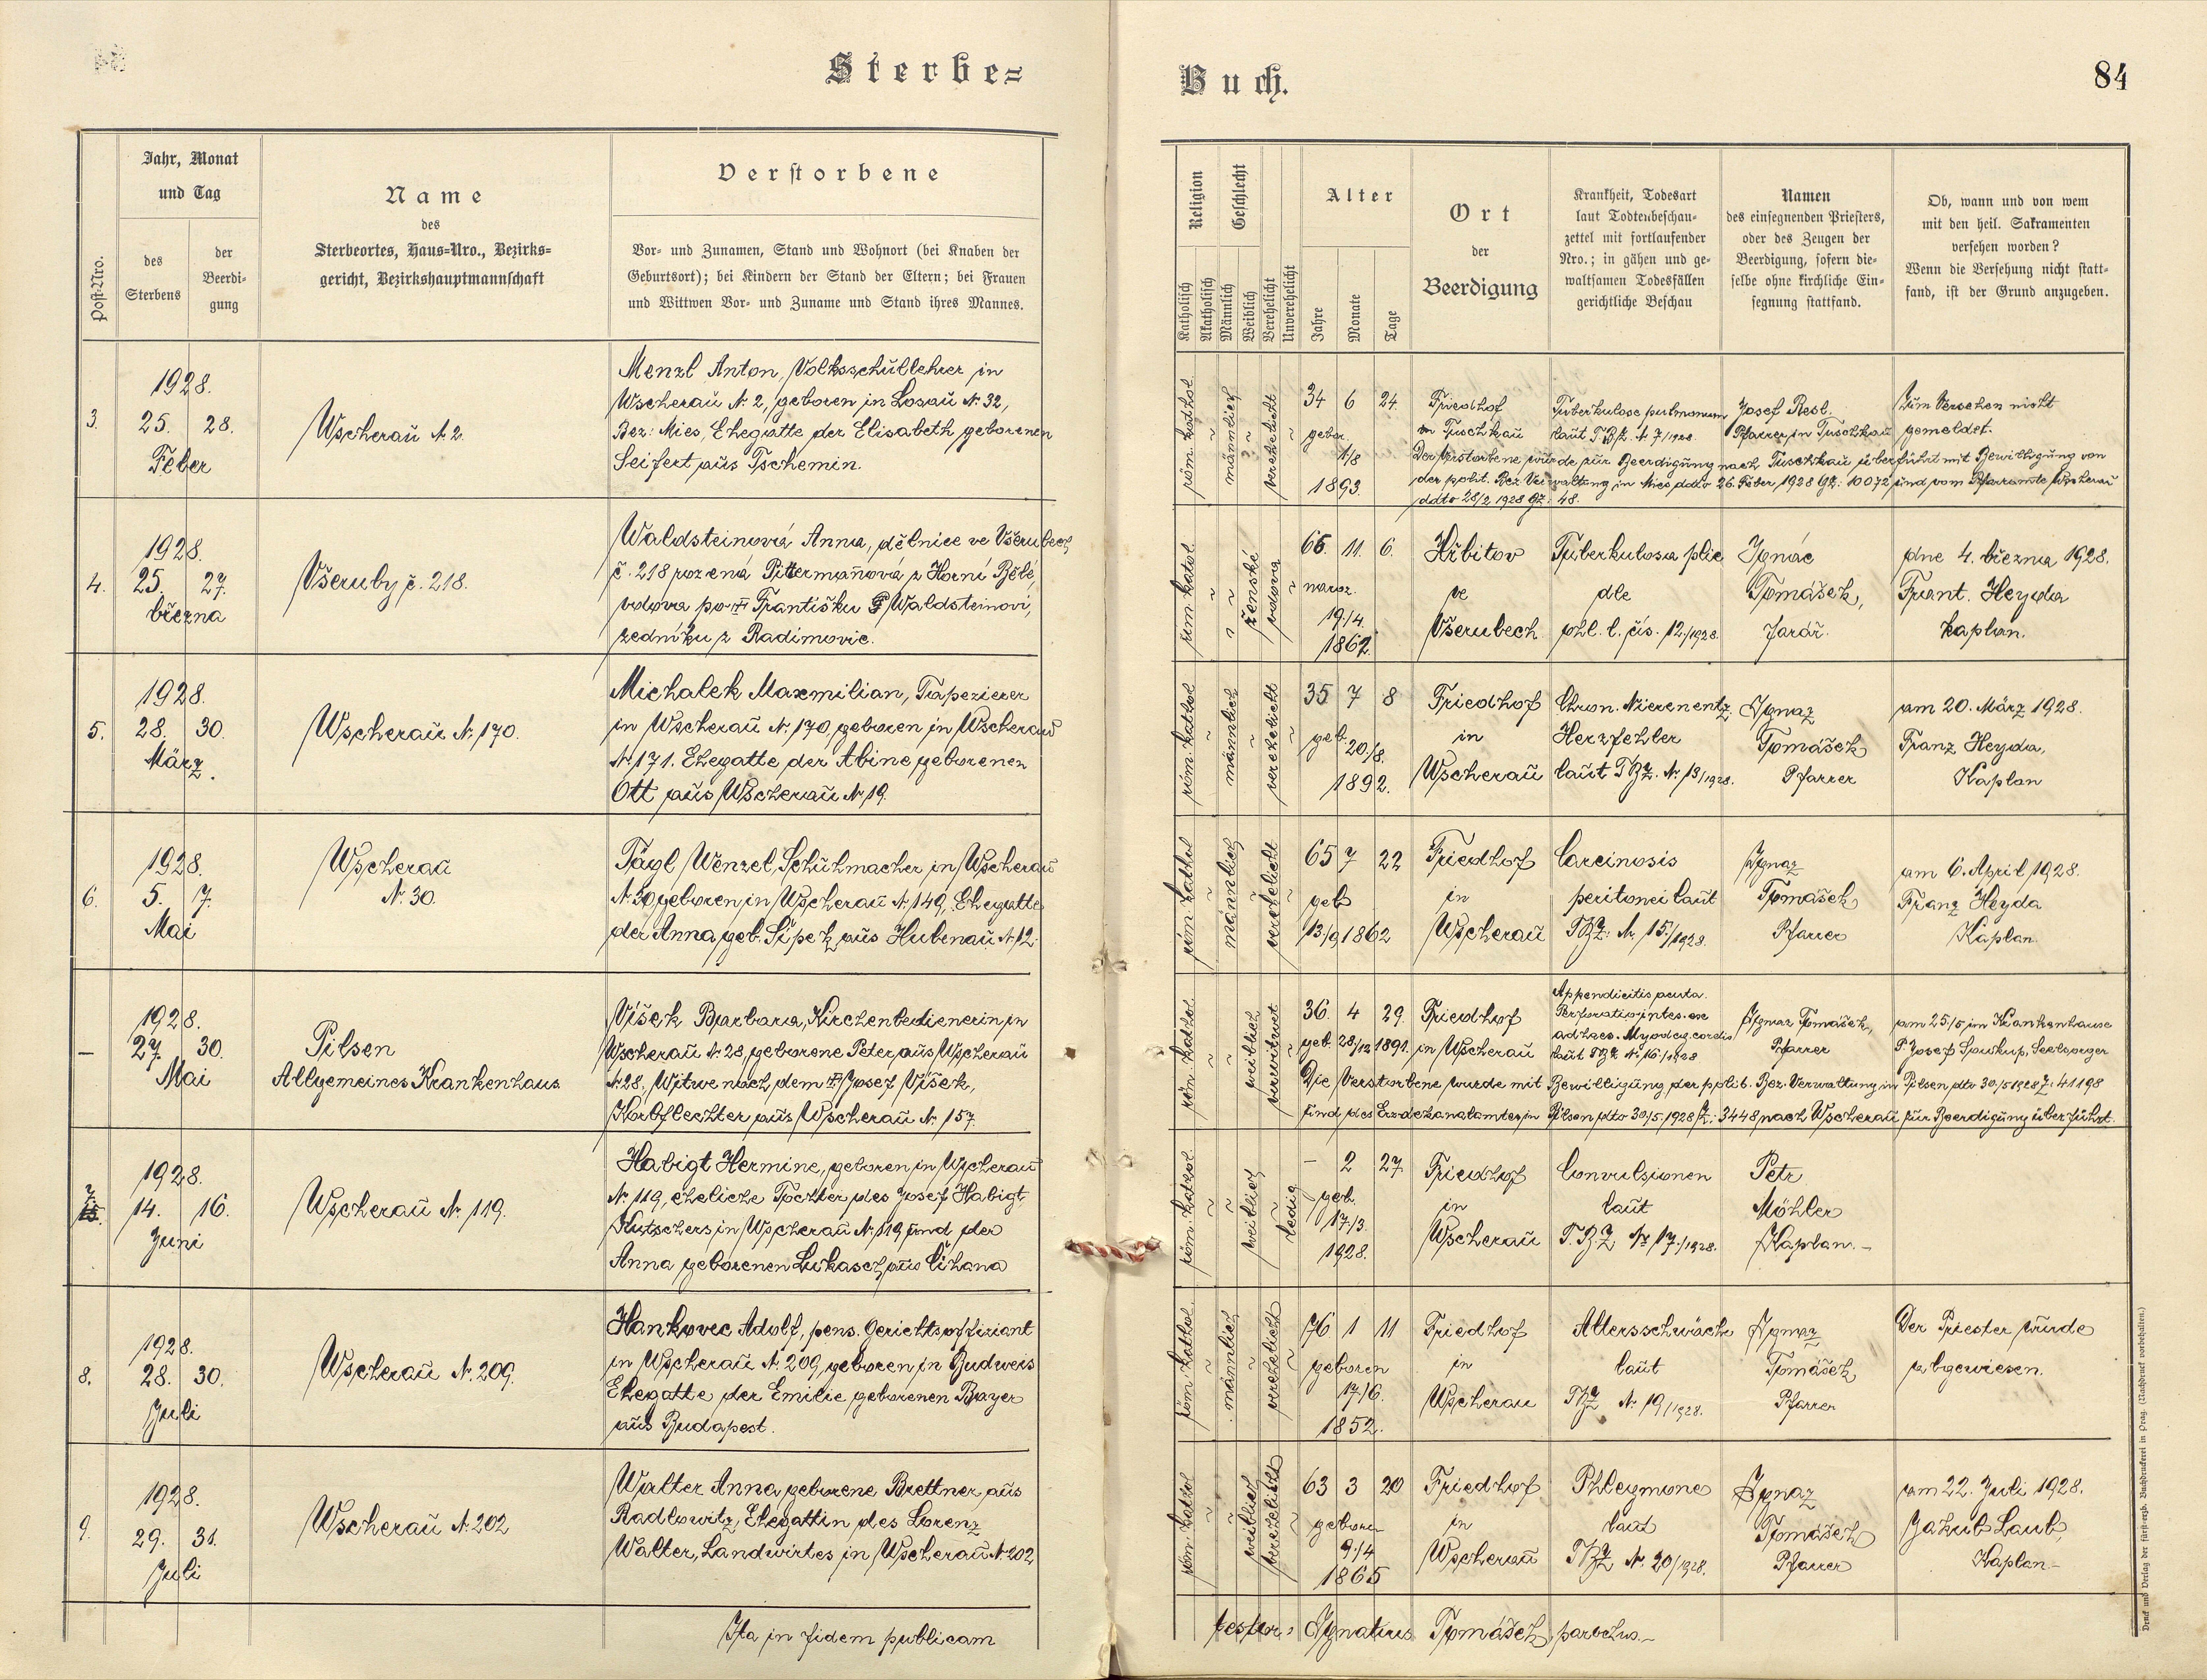 Sterbe-
Buch.
84
Post-Nro.
Jahr, Monat
und Tag
des
Sterbens
der
Beerdi-
gung
Name
des
Sterbeortes, Haus-Nro., Bezirks-
gericht, Bezirkshauptmannschaft
Verstorbene
Vor- und Zunamen, Stand und Wohnort (bei Knaben der
Geburtsort); bei Kindern der Stand der Eltern; bei Frauen
und Wittwen Vor- und Zuname und Stand ihres Mannes.
Religion
Katholisch
Akatholisch
Geschlecht
Männlich
Weiblich
Verehelicht
Unverehelicht
Alter
Jahre
Monate
Tage
Ort
der
Beerdigung
Krankheit, Todesart
laut Todtenbeschau-
zettel mit fortlaufender
Nro.; in gähen und ge-
waltsamen Todesfällen
gerichtliche Beschau
Namen
des einsegnenden Priesters,
oder des Zeugen der
Beerdigung, sofern die-
selbe ohne kirchliche Ein-
segnung stattfand.
Ob, wann und von wem
mit den heil. Sakramenten
versehen worden?
Wenn die Versehung nicht statt-
fand, ist der Grund anzugeben.
3.
1928.
25. 28.
Feber
Wscherau N. 2.
Menzl Anton, Volksschullehrer in
Wscherau N. 2, geboren in Losau N. 32,
Bez: Mies, Ehegatte der Elisabeth geborenen
Seifert aus Tschemin.
röm. kathol.
männlich
verehelicht
34 6 24
gebor.
1/8
1893.
Friedhof
in Tuschkau
Tuberkulose pulmonum
laut T.B.Z. N. 7/1928.
Josef Resl.
Pfarrer in Tuschkau
Zum Versehen nicht
gemeldet.
Der Verstorbene wurde zur Beerdigung nach Tuschkau überführt mit Bewilligung von
der polit. Bez. Verwaltung in Mies ddto 26. Feber, 1928 GZ: 10072 und vom Pfarramte Wscherau
ddto 28/2 1928 GZ: 48.
4.
1928.
25. 27.
března
Všeruby č. 218.
Waldsteinová Anna, dělnice ve Všerubech
č. 218 rozená Pittermannová z Horní Bělé,
vdova po Františku Waldsteinovi,
zedníku z Radimovic.
řím. katol.
ženské
vdova
66. 11. 6.
naroz.
19./4.
1862.
Hřbitov
ve
Všerubech
Tuberkulosa plic
dle
ohl. l. čís. 12./1928.
Ignác
Tomášek,
farář.
dne 4. března 1928.
Frant. Heyda
kaplan.
5.
1928.
28. 30.
März.
Wscherau N. 170.
Michalek Maxmilian, Tapezierer
in Wscherau N. 170, geboren in Wscherau
N. 171. Ehegatte der Albine geborenen
Ott aus Wscherau N. 19.
röm. kathol
männlich
verehelicht
35 7 8
geb.
20./8.
1892.
Friedhof
in
Wscherau
Chron. Nierenentz.
Herzfehler
laut T.B.Z. N. 13/1928.
Ignaz
Tomášek
Pfarrer
am 20. März 1928.
Franz Heyda,
Kaplan
6.
1928.
5. 7.
Mai
Wscherau
N. 30.
Tägl Wenzel, Schuhmacher in Wscherau
N. 30 geboren in Wscherau N. 149, Ehegatte
der Anna geb. Šipek aus Hubenau N. 12.
röm. kathol
männlich
verehelicht
65 7 22
geb
13/9 1862
Friedhof
in
Wscherau
Carcinosis
peritonei laut
TBZ: N. 15./1928.
Ignaz
Tomášek
Pfarrer
am 6. April 1928.
Franz Heyda
Kaplan.
–
1928.
27. 30.
Mai
Pilsen
Allgemeines Krankenhaus
Víšek Barbara, Kirchenbedienerin in
Wscherau N. 28, geborene Peter aus Wscherau
N. 28, Witwe nach dem Josef Víšek,
Korbflechter aus Wscherau N. 157.
röm. kathol.
weiblich
verwitwet
36. 4 29.
geb. 28/12 1891.
Friedhof
in Wscherau
Appendicitis acuta.
Perforatio intes. ex
adhaes. Myodeg. cordis
laut TBZ N. 16./1928
Ignaz Tomášek,
Pfarrer
am 25/5 im Krankenhause
P. Josef Soukup, Seelsorger
Die Verstorbene wurde mit Bewilligung der polit. Bez. Verwaltung in Pilsen dto 30/5 1928 Z: 41198
und des Erzdekanalamtes in Pilsen dto 30/5. 1928 Z: 3448 nach Wscherau zur Beerdigung überführt.
7.
1928.
14. 16.
Juni
Wscherau N. 119.
Habigt Hermine, geboren in Wscherau
N. 119, eheliche Tochter des Josef Habigt,
Kutschers in Wscherau N. 119 und der
Anna geborenen Lukasch aus Čihana
röm. kathol.
weiblich
ledig
– 2 27
geb.
17./3.
1928.
Friedhof
in
Wscherau
Convulsionen
laut
T.B.Z N. 17./1928.
Petr
Möhler
Kaplan.–
8.
1928.
28. 30.
Juli
Wscherau N. 209.
Hankovec Adolf, pens. Gerichtsoffiziant
in Wscherau N. 209, geboren in Budweis
Ehegatte der Emilie geborenen Bayer
aus Budapest.
röm. kathol.
männlich
verehelicht
76 1 11
geboren
17./6.
1852.
Friedhof
in
Wscherau
Altersschwäche
laut
TBZ N. 19/1928.
Ignaz
Tomášek
Pfarrer
Der Priester wurde
abgewiesen.
9.
1928.
29. 31.
Juli
Wscherau N. 202
Walter Anna geborene Brettner aus
Radlowitz, Ehegattin des Lorenz
Walter, Landwirtes in Wscherau N. 202
röm. kathol
weiblich
verehelicht
63 3 20
geboren
9./4
1865
Friedhof
in
Wscherau
Phlegmone
laut
TBZ N. 20/1928.
Ignaz
Tomášek
Pfarrer
am 22. Juli 1928.
Jakub Laub,
Kaplan–
Ita in fidem publicam
testor: Ignatius Tomášek, parochus.–
Druck und Verlag der fürst-erzb. Buchdruckerei in Prag. (Nachdruck vorbehalten.)